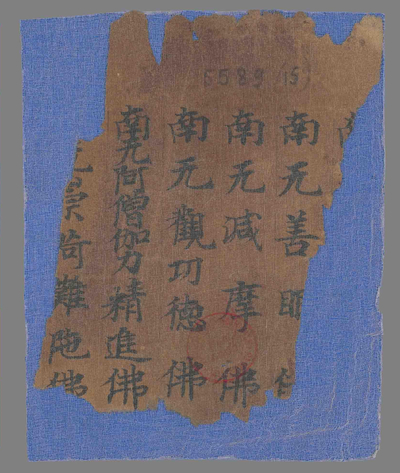 6589 15
南无善明佛
南无减摩佛
南无觀功德佛
南无阿僧伽力精進佛
難陁佛